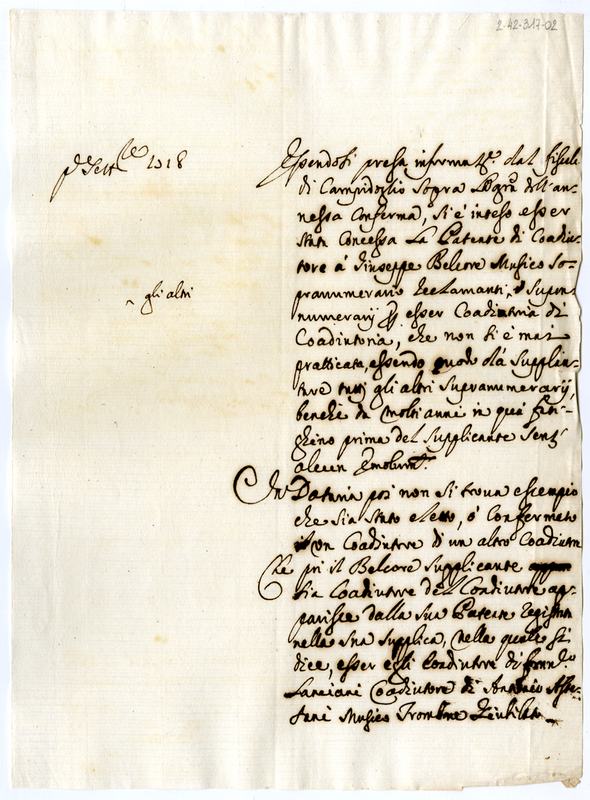 2-42-317-02
p.e Sett.re 1718
Essendosi presa informat.e dal fiscale
di Campidoglio sopra dell'an-
nessa Conferma, si é inteso esser
stata Concessa La Patente di Coadiu-
tore á Giuseppe Belcore Musico so-
pranumerario Reclamanti ^ gli altri Supra
numerarij esser Coadiutoria di
Coadiutoria, che non si é mai
pratticata, essendo dá Supplan-
tare tutti gli altri Supranumerarij,
benché da molti anni in quá fati-
ghino prima del supplicante senz'
alcun Emolum.to
In Dataria poi non si trova essempio
che sia stato eletto, ó Confermato
un Coadiutore d'un altro Coadiutore
Che poi il Belcore supplicante
sia Coadiutore del Coadiutore ap-
parisce dalla sua Patente Registrata
nella sua supplica, nella quale si
dice, esser egli Coadiutore di fran.co
Lanciani Coadiutore di Antonio
Musico Trombone Giubilato